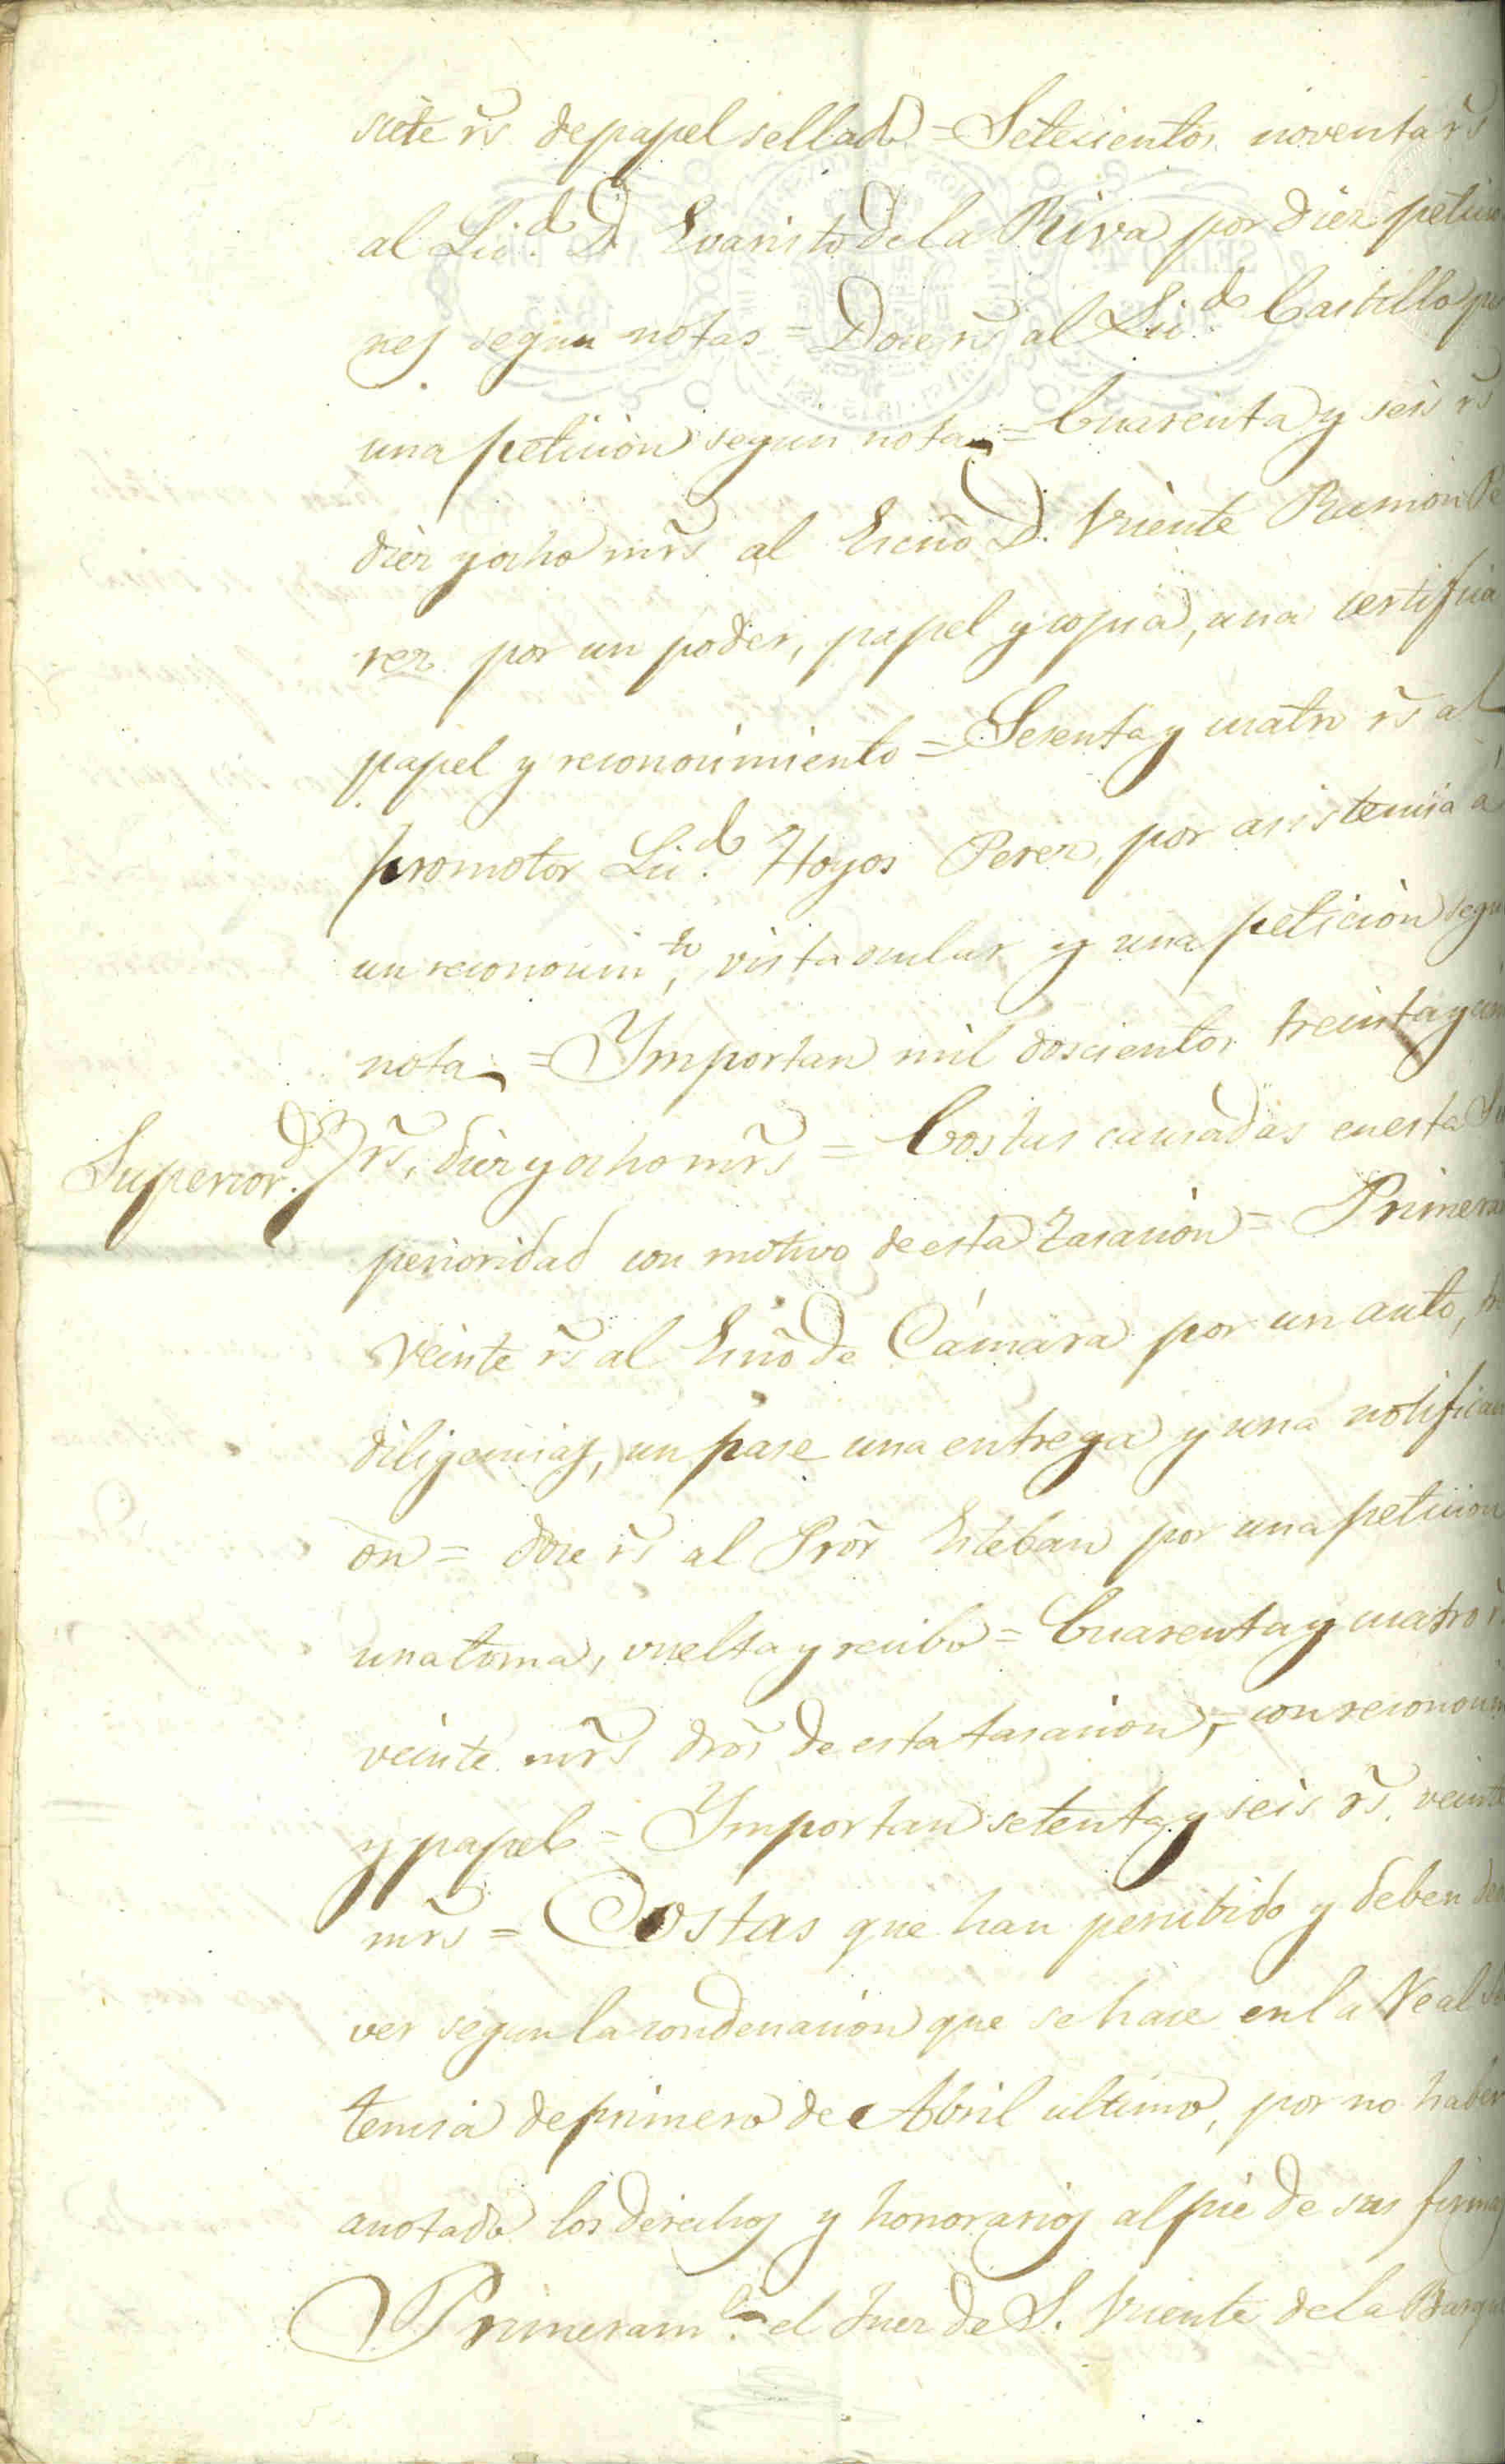 siete r.s de papel sellado = Setecientos noventa r.s
al Lic.do D. Evaristo de la Riva por diez peticio
nes segun notas = Doce r.s al Lic.do Castillo por
una peticion segun nota = Cuarenta y seis r.s
diez y ocho mrs al Escno D. Vicente Ramon Pe
rez por un poder, papel y copia, una certifica
papel y reconocimiento = Sesenta y cuatro r.s al
promotor Lic.do Hoyos Perez, por asistencia a
un reconocim.to, vista ocular y una peticion segu
nota = Importan mil doscientos treinta y cin
Superior.d r.s, diez y ocho mrs = Costas causadas en esta Su
perioridad con motivo de esta tasacion = Primera
veinte r.s al Esno de Cámara por un auto,
diligencias, un pase una entrega y una notificaci
on = doce r.s al Pror Esteban por una peticion
una toma, vuelta y recibo = Cuarenta y cuatro r.
veinte mrs dros de esta tasacion, con reconocim
y papel = Importan setenta y seis r.s veinte
mrs = Costas que han percibido y deben de
ver segun la condenacion que se hace en la Real
tencia de primero de Abril ultimo, por no haber
anotado los derechos y honorarios al pie de sus firmas
Primeram.te el Juez de S. Vicente de la Barqu